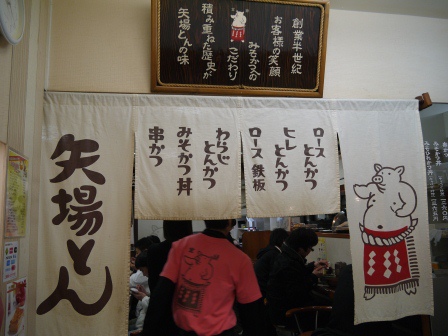 創業半世紀
お客様の笑顔
みそかつの
こだわり
積み重ねた歴史が
矢場とんの味
ロース とんかつ
ヒレ とんかつ
ロース 鉄板
わらじ とんかつ
みそかつ丼
串かつ
矢場とん